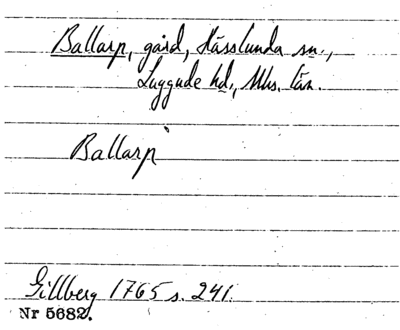 Ballarp, gård, Hässlunda sn.,
Luggude hd., Mhs. län.
Ballarp
Gillberg 1765 s. 241.
Nr 5682.